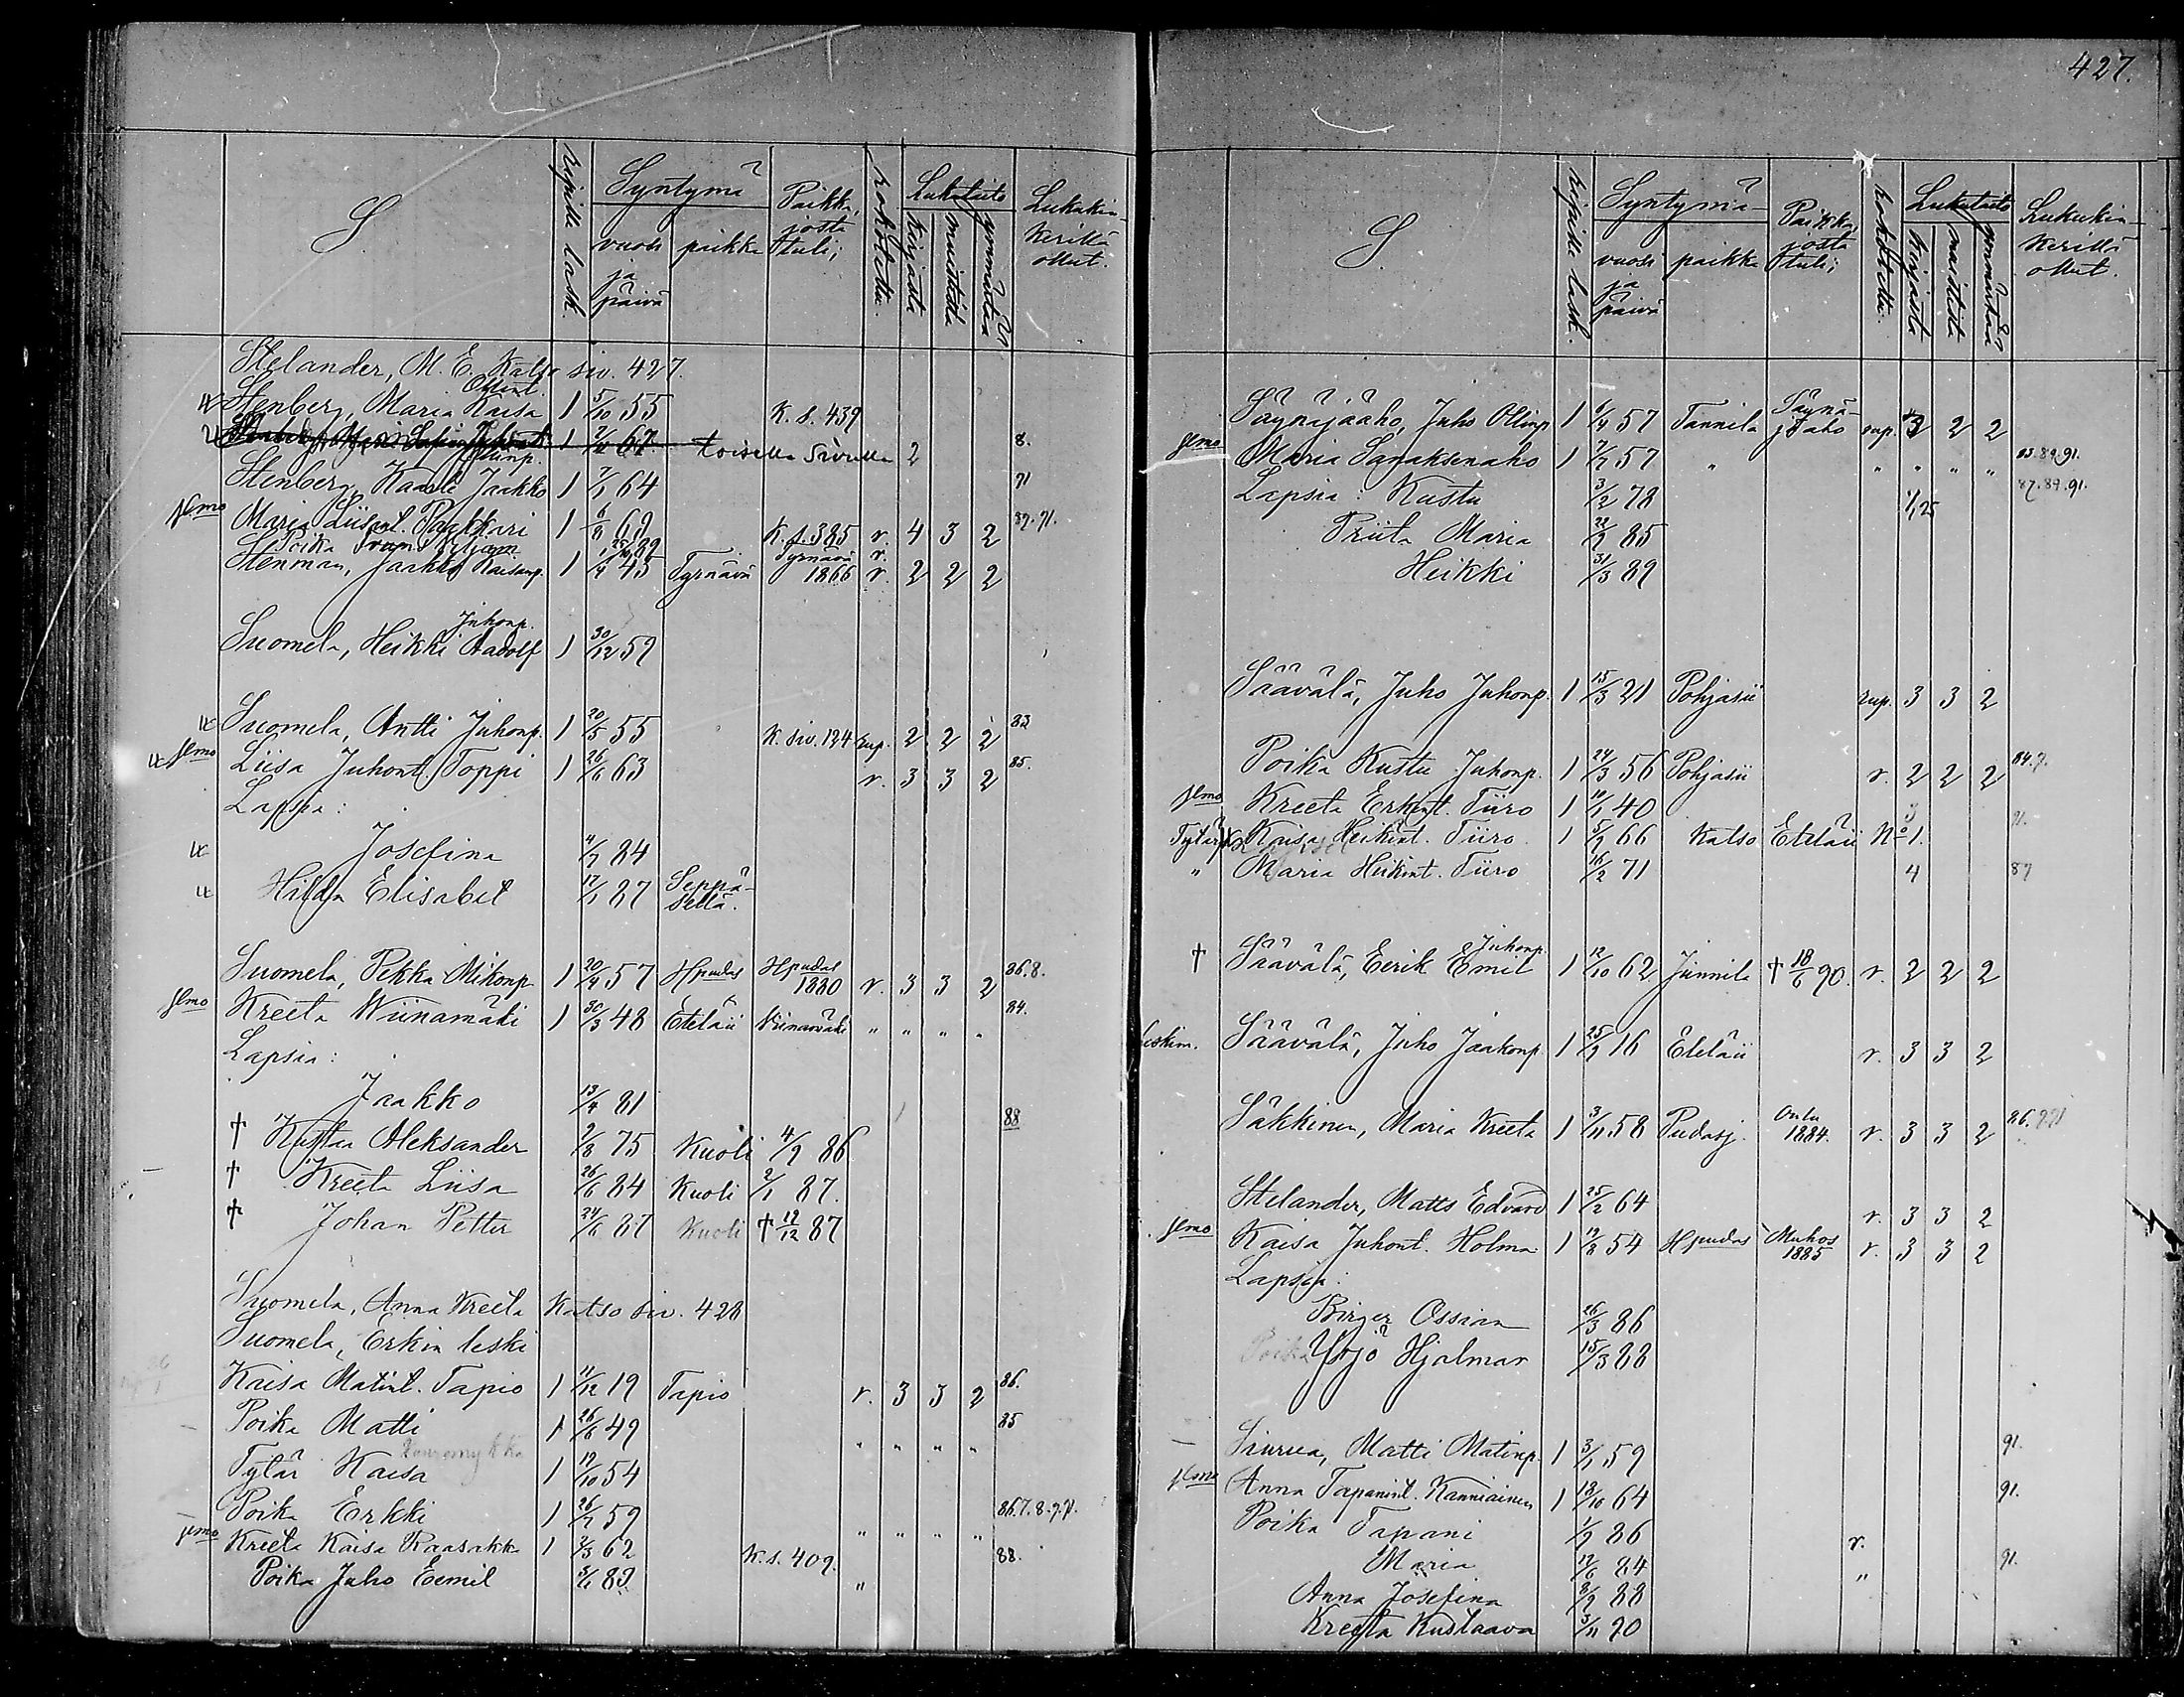 427.
S.
ripille lask.
Syntymä
vuosi ja päivä
paikka
Paikka, josta tuli;
rokotettu.
Lukutaito
kirjasta
muistista
ymmärtää
Lukukinkerillä ollut.
Stelander, M. E. Katso siv. 427.
Ollint.
Stenberg, Maria Kaisa 1 5/10 55 K. s. 439
1 67. toisella sivulla 2 8.
Stenberg, Kaarle Jaakko 1 7/1 64 91
jlmo Maria Liisa Paakkari 1 6/8 69 K. s. 385 r. 4 3 2 89.91.
Poika 89 r.
Stenman, Jaakko Kaisanp. 1 1/4 45 Tyrnävä Tyrnävä 1866 r. 2 2 2
Juhonp.
Suomela, Heikki Aadolf 1 30/12 59
Suomela, Antti Juhonp. 1 20/5 55 K. siv. 124 rup. 2 2 2 83
jlmo Liisa Juhont. Toppi 1 26/6 63 r. 3 3 2 85.
Lapsia:
Josefina 4/7 84
Hilda Elisabet 17/1 87 Seppäsellä.
Suomela, Pekka Mikonp 1 20/4 57 Hpudas Hpudas 1880 r. 3 3 2 86.8.
jlmo Kreeta Wiinamäki 1 30/3 48 Eteläii Wiinamäki " " " " 84.
Lapsia:
Jaakko 13/4 81
† Kustaa Aleksander 9/8 75 Kuoli 4/9 86 88
† Kreeta Liisa 26/6 84 Kuoli 2/1 87.
† Johan Petter 24/6 87 Kuoli † 19/12 87
Suomela, Anna Kreeta Katso siv. 428
Suomela, Erkin leski
Kaisa Matint. Tapio 1 11/12 19 Tapio r. 3 3 2 86.
Poika Matti 1 26/6 49 " " " " 85
Kuuromykkä
Tytär Kaisa 1 19/10 54
Poika Erkki 1 26/7 59 " " " " 86.7.8.9.91.
jlmo Kreeta Kaisa Raasakka 1 2/3 62 K. s. 409. 88.
Poika Juho Eemil 5/1 89 "
S.
ripille lask.
Syntymä
vuosi ja päivä
paikka
Paikka, josta tuli;
rokotettu.
Lukutaito
kirjasta
muistista
ymmärtää
Lukukinkerillä ollut.
Säynäjäaho, Juho Ollinp 1 6/4 57 Tannila Säynäjäaho rup. 3 2 2
jlmo Maria Sanaksenaho 1 7/7 57 " " " " " 85.89.91.
Lapsia: Kustu 3/2 78 87.89.91.
Priita Maria 85
Heikki 31/3 89
Säävälä, Juho Juhonp. 1 15/3 21 Pohjasii rup. 3 3 2
Poika Kustu Juhonp. 1 24/3 56 Pohjasii r. 2 2 2 84.9.
jlmo Kreeta Erkint. Tiiro 1 10/1 40 3
Tytär Kaisa Heikint. Tiiro 1 5/9 66 Katso Eteläii No 1. 91.
" Maria Heikint. Tiiro 16/2 71 4 87
Juhonp
† Säävälä, Eerik Emil 1 12/10 62 Jinnilä † 18/6 90. r. 2 2 2
leskim. Säävälä, Juho Jaakonp. 1 25/9 16 Eteläii r. 3 3 2
Säkkinen, Maria Kreeta 1 3/11 58 Pudasj. Oulu 1884. r. 3 3 2 86.
Stelander, Matts Edvard 1 25/2 64 r. 3 3 2
jlmo Kaisa Juhont. Holma 1 19/8 54 Hpudas Muhos 1885 r. 3 3 2
Lapsia:
Birger Ossian 26/3 86
Poika Yrjö Hjalmar 15/3 88
Siurua, Matti Matinp. 1 3/1 59 91.
jlmo Anna Tapanint. Kanniainen 1 18/10 64 91.
Poika Tapani 1/9 86 r.
Maria 12/6 84 " 91.
Anna Josefina 8/9 88
Kreeta Kustaava 3/11 90